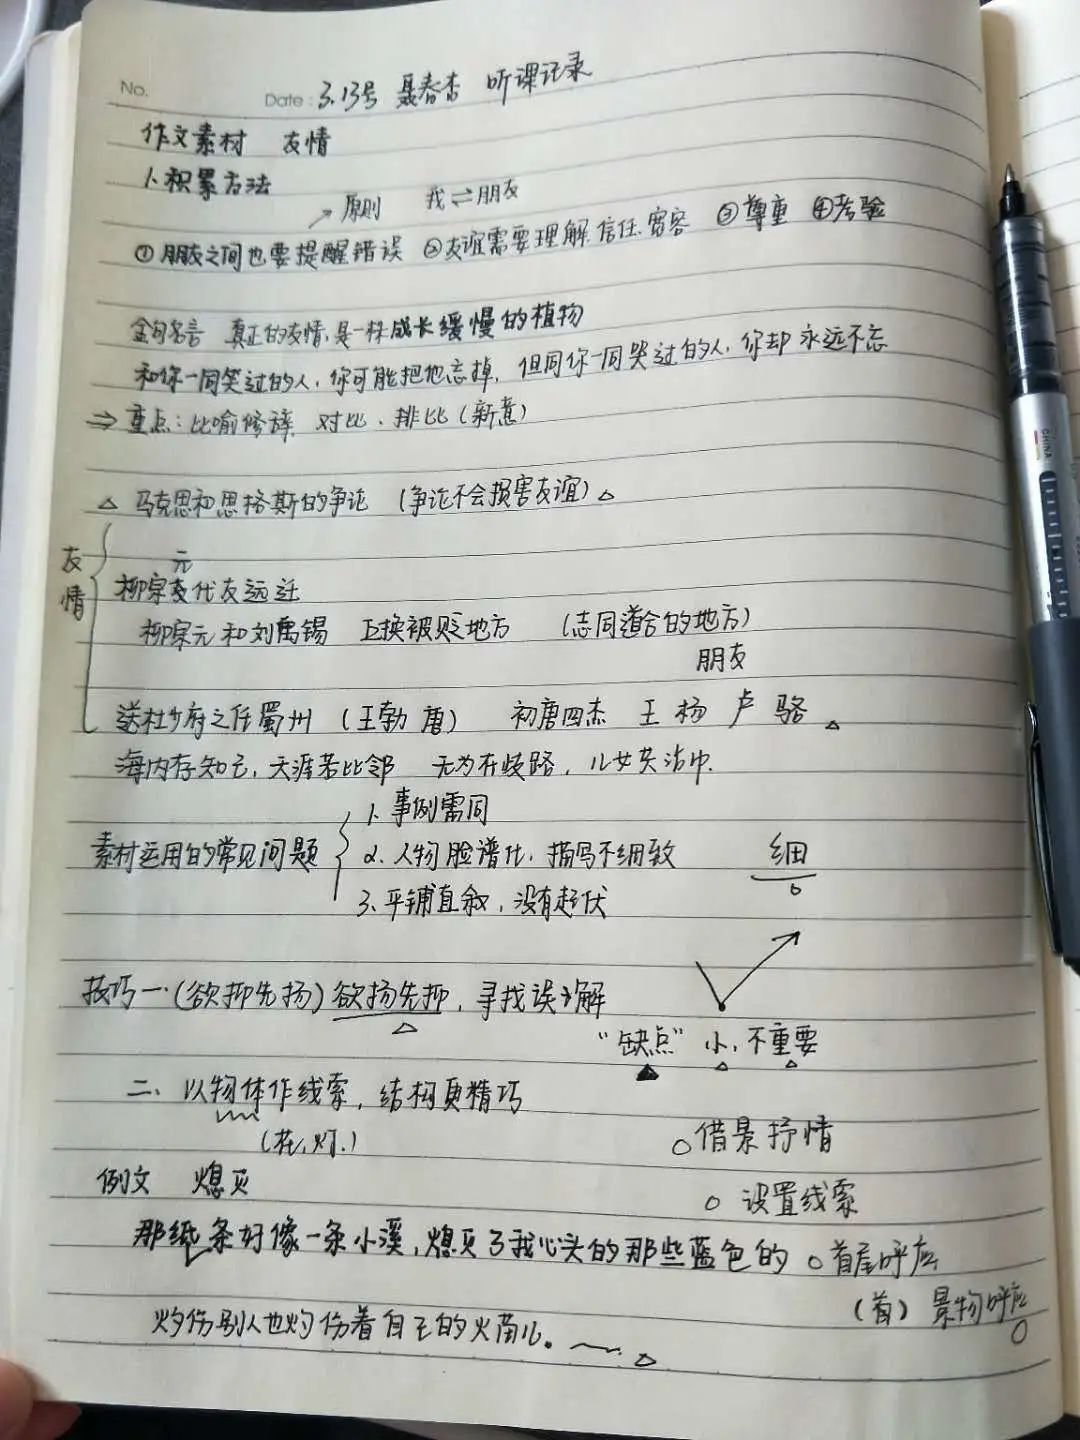 No.
Date: 3.13号 聂春杏 听课记录
作文素材 友情
1.积累方法
↗原则 我⇌朋友
①朋友之间也要提醒错误 ②友谊需要理解.信任.宽容 ③尊重 ④考验
金句名言 真正的友情,是一株成长缓慢的植物
和你一同笑过的人,你可能把他忘掉,但同你一同哭过的人,你却永远不忘
⇒ 重点:比喻修辞、对比、排比(新意)
△ 马克思和恩格斯的争论 (争论不会损害友谊)△
友情
元
柳宗代友远迁
柳宗元和刘禹锡 互换被贬地方 (志同道合的地方)
朋友
送杜少府之任蜀州 (王勃 唐) 初唐四杰 王 杨 卢 骆 △
海内存知己,天涯若比邻 无为在歧路,儿女共沾巾.
素材运用的常见问题
1.事例雷同
2.人物脸谱化,描写不细致 细
3.平铺直叙,没有起伏
技巧一.(欲抑先扬)欲扬先抑,寻找误解
△
"缺点" 小,不重要
▲ △ △
二、以物体作线索,结构更精巧
(花,灯.) ○借景抒情
例文 熄灭 ○ 设置线索
那纸条好像一条小溪,熄灭了我心头的那些蓝色的 ○首尾呼应
(首)景物呼应
灼伤别人也灼伤着自己的火苗儿。 △
CHINA